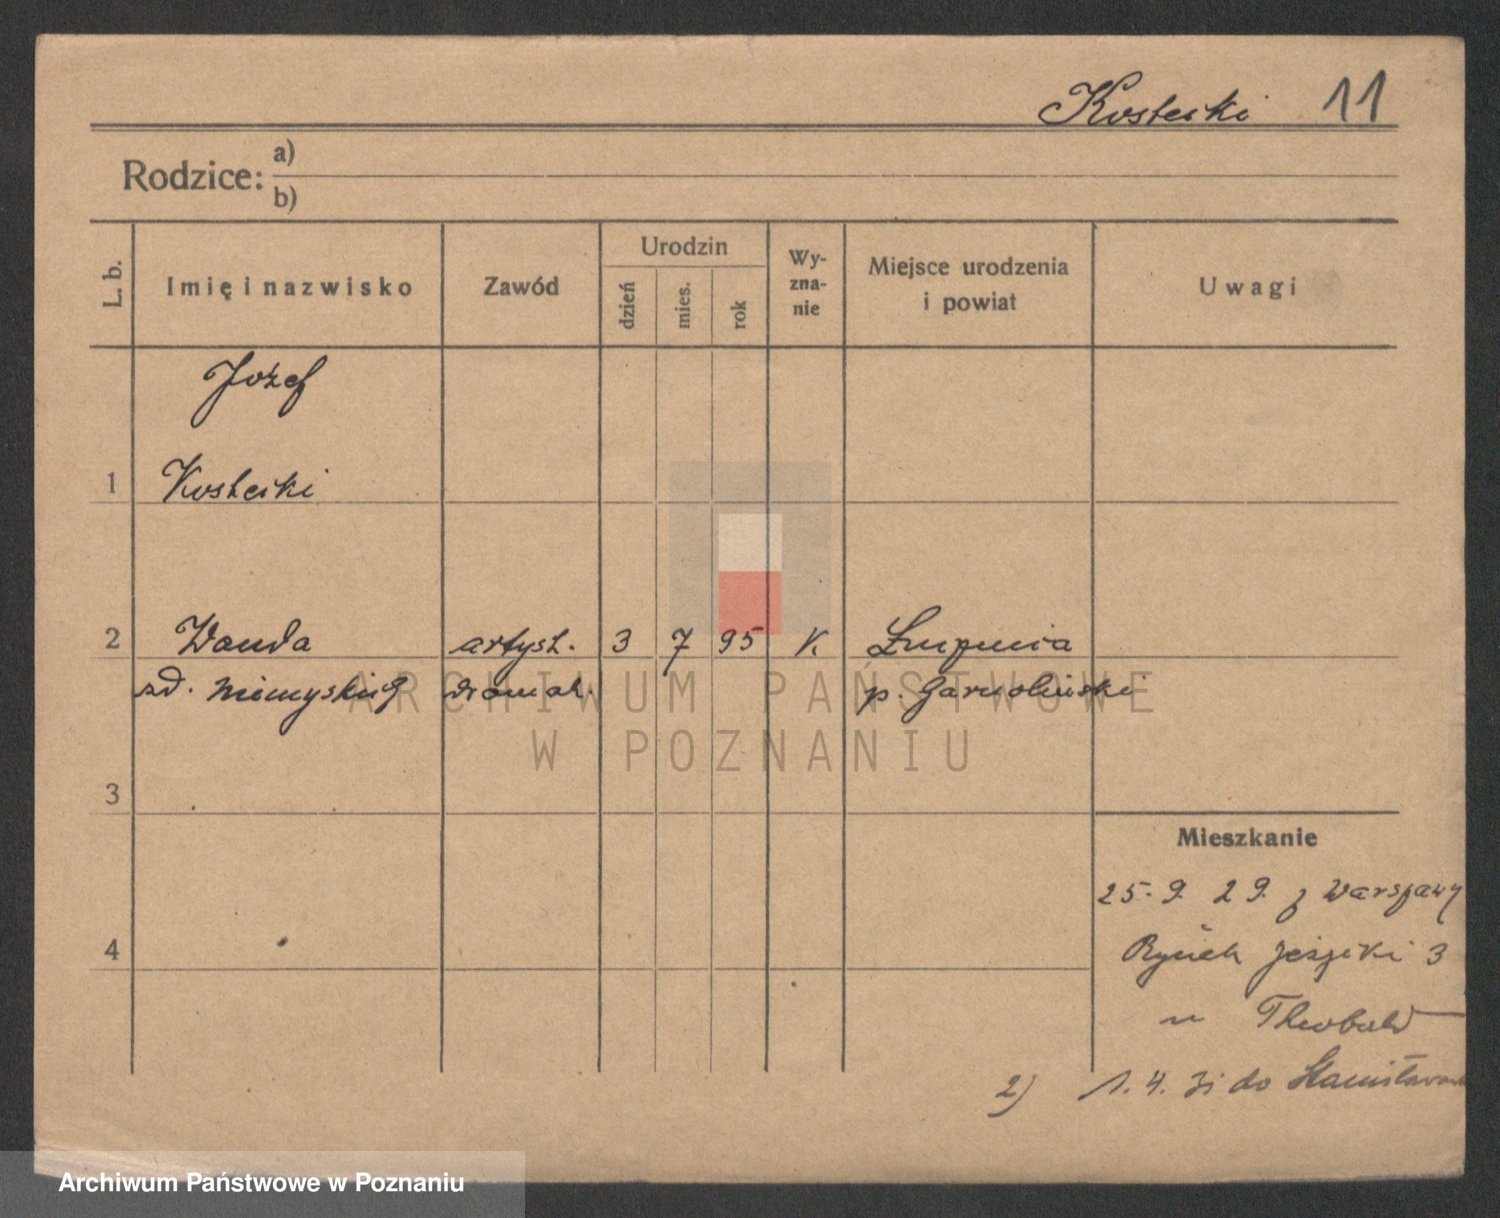 Kostecki 11
Rodzice: a)
b)
L. b. Imię i nazwisko Zawód Urodzin dzień mies. rok Wy-zna-nie Miejsce urodzenia i powiat Uwagi
Józef
1 Kostecki
2 Wanda artyst. 3 7 95 K
zd. dramat. p. Garwoliński
3
4
Mieszkanie
25. 9. 29. z Warszawy
Rynek Jeżycki 3
u Theobald
2) 1. 4. 31 do
ARCHIWUM PAŃSTWOWE
W POZNANIU
Archiwum Państwowe w Poznaniu